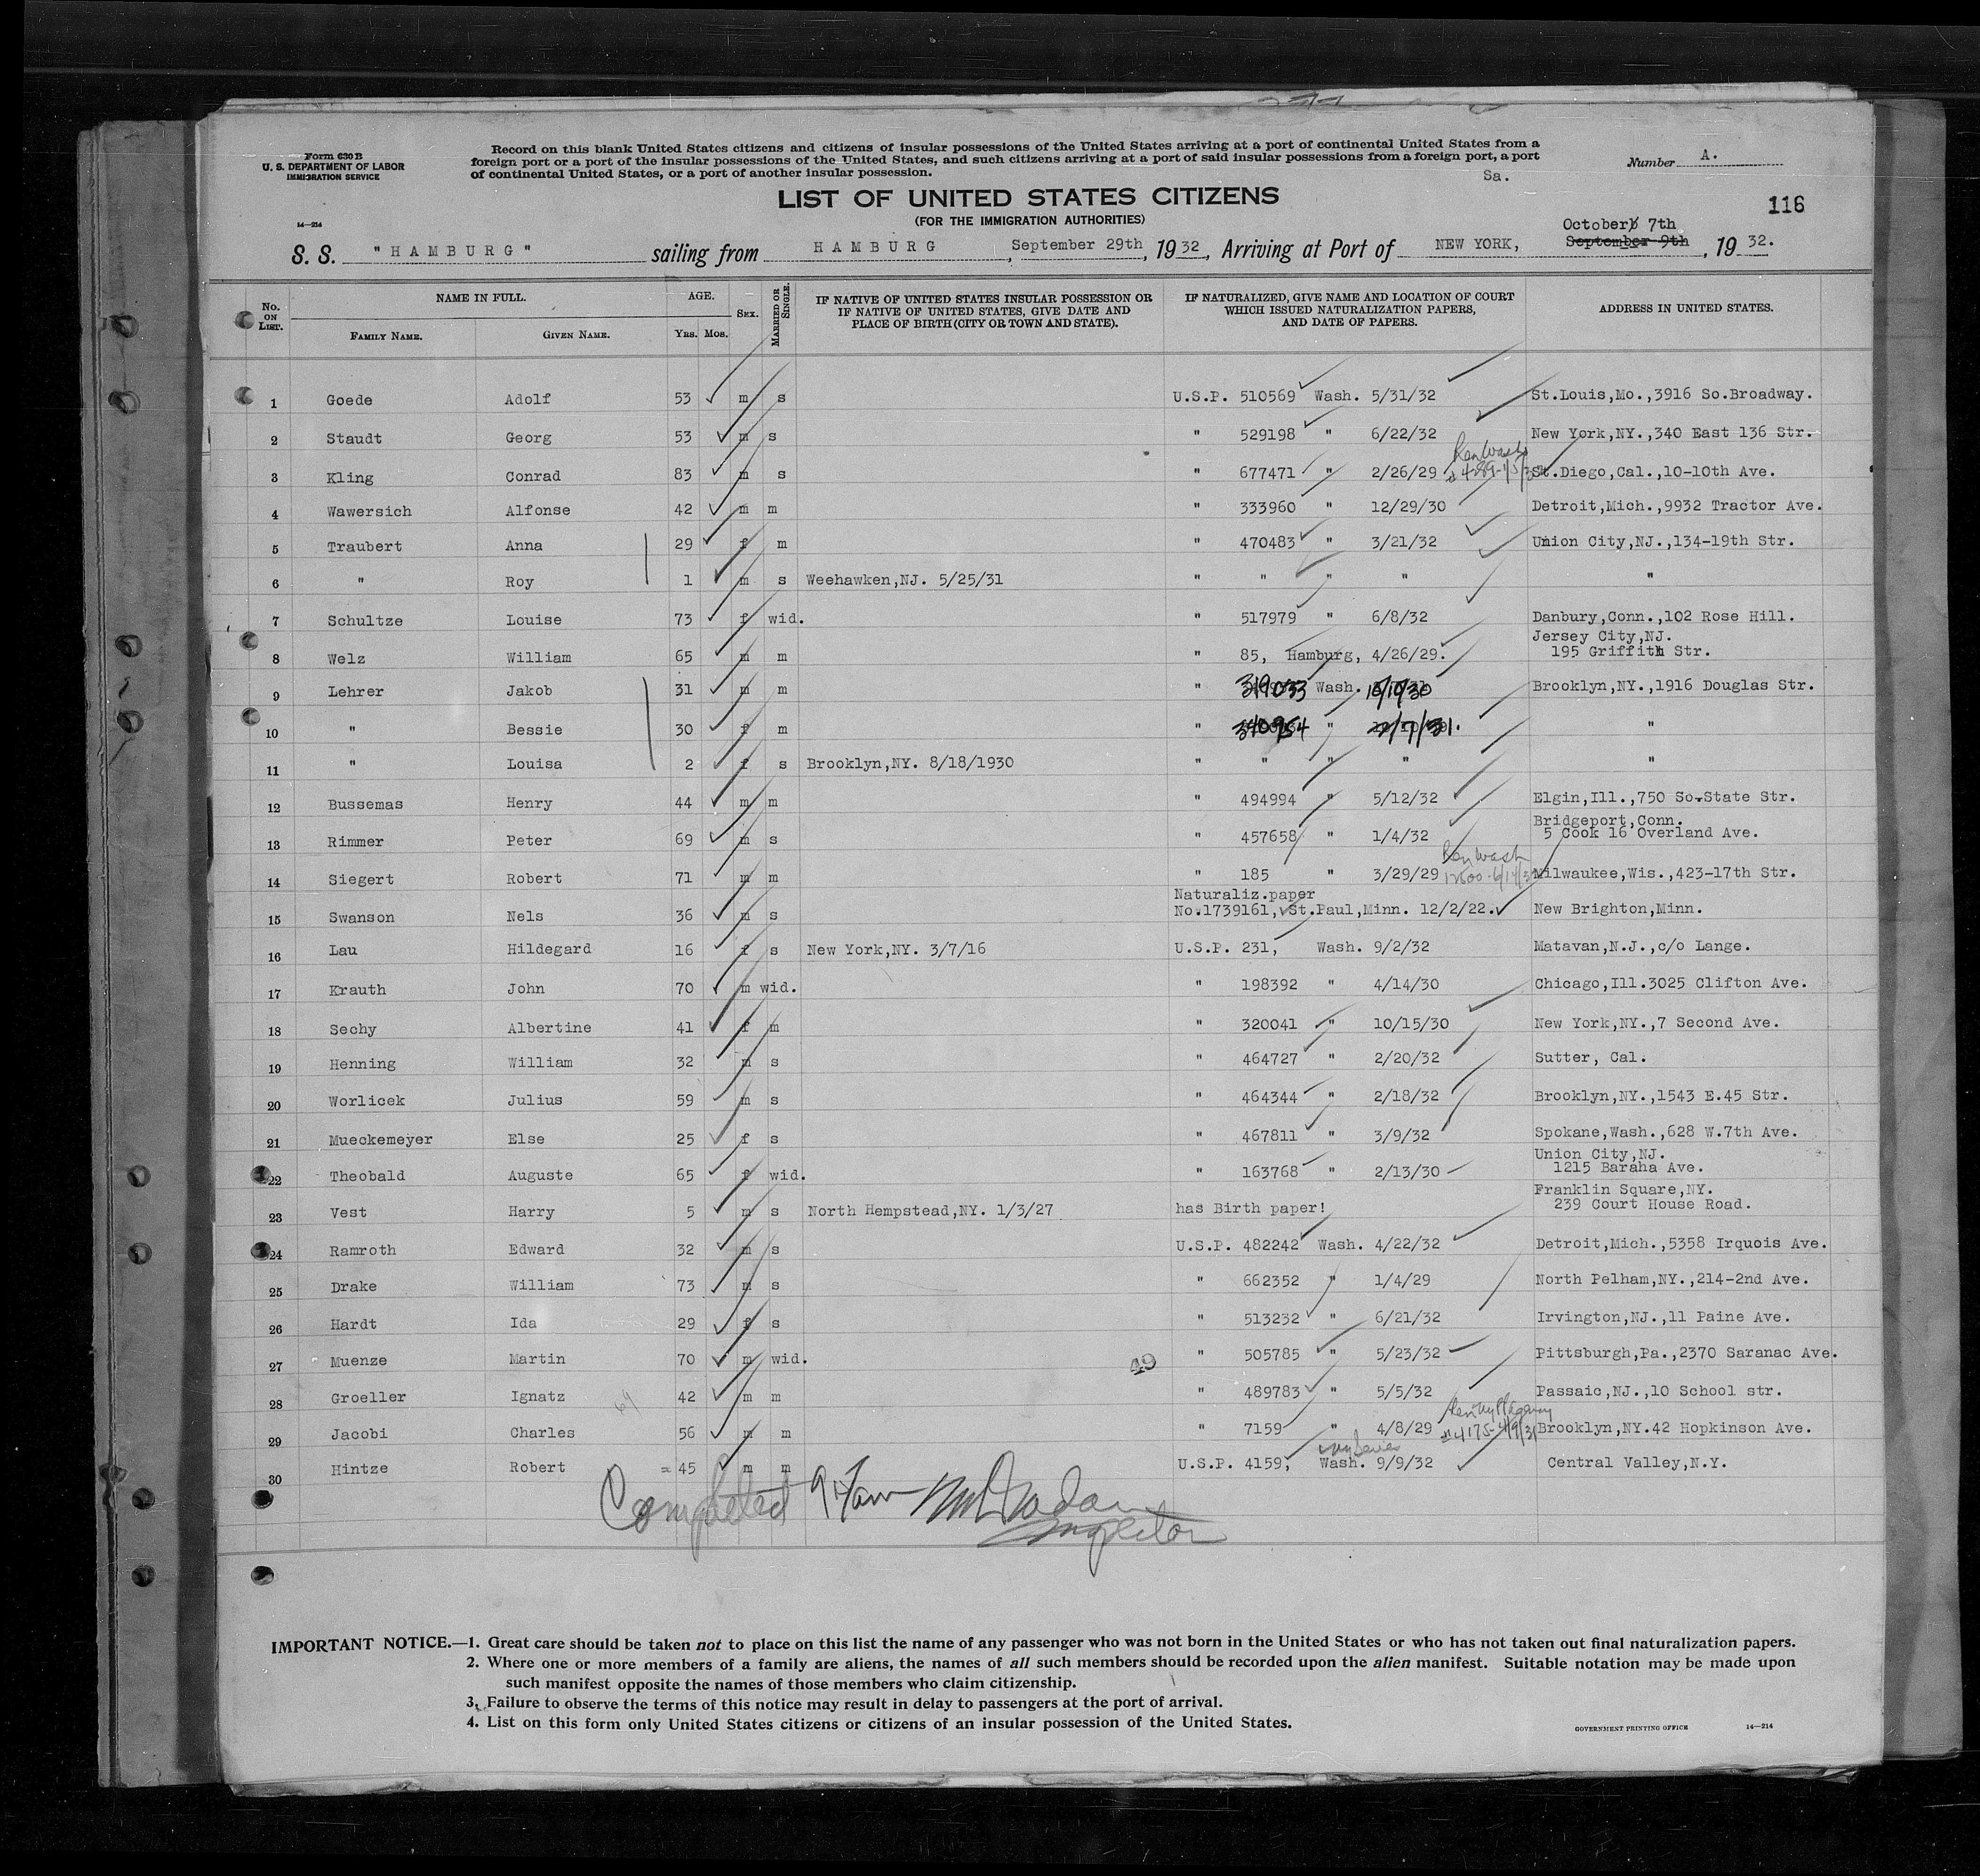 Form 630 B
U. S. DEPARTMENT OF LABOR
IMMIGRATION SERVICE
14—214
Record on this blank United States citizens and citizens of insular possessions of the United States arriving at a port of continental United States from a
foreign port or a port of the insular possessions of the United States, and such citizens arriving at a port of said insular possessions from a foreign port, a port
of continental United States, or a port of another insular possession.
Number A.
Sa.
LIST OF UNITED STATES CITIZENS
(FOR THE IMMIGRATION AUTHORITIES)
116
October 7th
S. S. "HAMBURG" sailing from HAMBURG, September 29th, 1932, Arriving at Port of NEW YORK, September 9th, 1932.
No. ON LIST. NAME IN FULL. FAMILY NAME. GIVEN NAME. AGE. YRS. MOS. SEX. MARRIED OR SINGLE. IF NATIVE OF UNITED STATES INSULAR POSSESSION OR IF NATIVE OF UNITED STATES, GIVE DATE AND PLACE OF BIRTH (CITY OR TOWN AND STATE). IF NATURALIZED, GIVE NAME AND LOCATION OF COURT WHICH ISSUED NATURALIZATION PAPERS, AND DATE OF PAPERS. ADDRESS IN UNITED STATES.
1 Goede Adolf 53 m s U.S.P. 510569 Wash. 5/31/32 St.Louis,Mo.,3916 So.Broadway.
2 Staudt Georg 53 m s " 529198 " 6/22/32 New York,NY.,340 East 136 Str.
3 Kling Conrad 83 m s " 677471 " 2/26/29 Ren Wash St.Diego,Cal.,10-10th Ave.
4 Wawersich Alfonse 42 m m " 333960 " 12/29/30 Detroit,Mich.,9932 Tractor Ave.
5 Traubert Anna 29 f m " 470483 " 3/21/32 Union City,NJ.,134-19th Str.
6 " Roy 1 m s Weehawken,NJ. 5/25/31 " " " " "
7 Schultze Louise 73 f wid. " 517979 " 6/8/32 Danbury,Conn.,102 Rose Hill.
Jersey City,NJ.
8 Welz William 65 m m " 85, Hamburg, 4/26/29. 195 Griffith Str.
9 Lehrer Jakob 31 m m " 319033 Wash. 10/1/30 Brooklyn,NY.,1916 Douglas Str.
10 " Bessie 30 f m " 340954 " /7/31. "
11 " Louisa 2 f s Brooklyn,NY. 8/18/1930 " " " " "
12 Bussemas Henry 44 m m " 494994 " 5/12/32 Elgin,Ill.,750 So.State Str.
Bridgeport,Conn.
13 Rimmer Peter 69 m s " 457658 " 1/4/32 5 Cook 16 Overland Ave.
14 Siegert Robert 71 m m " 185 " 3/29/29 Ren Wash Milwaukee,Wis.,423-17th Str.
Naturaliz.paper
15 Swanson Nels 36 m s No.1739161, St.Paul,Minn. 12/2/22. New Brighton,Minn.
16 Lau Hildegard 16 f s New York,NY. 3/7/16 U.S.P. 231, Wash. 9/2/32 Matavan,N.J.,c/o Lange.
17 Krauth John 70 m wid. " 198392 " 4/14/30 Chicago,Ill.3025 Clifton Ave.
18 Sechy Albertine 41 f m " 320041 " 10/15/30 New York,NY.,7 Second Ave.
19 Henning William 32 m s " 464727 " 2/20/32 Sutter, Cal.
20 Worlicek Julius 59 m s " 464344 " 2/18/32 Brooklyn,NY.,1543 E.45 Str.
21 Mueckemeyer Else 25 f s " 467811 " 3/9/32 Spokane,Wash.,628 W.7th Ave.
Union City,NJ.
22 Theobald Auguste 65 f wid. " 163768 " 2/13/30 1215 Baraha Ave.
Franklin Square,NY.
23 Vest Harry 5 m s North Hempstead,NY. 1/3/27 has Birth paper! 239 Court House Road.
24 Ramroth Edward 32 m s U.S.P. 482242 Wash. 4/22/32 Detroit,Mich.,5358 Irquois Ave.
25 Drake William 73 m s " 662352 " 1/4/29 North Pelham,NY.,214-2nd Ave.
26 Hardt Ida 29 f s " 513232 " 6/21/32 Irvington,NJ.,11 Paine Ave.
27 Muenze Martin 70 m wid. 49 " 505785 " 5/23/32 Pittsburgh,Pa.,2370 Saranac Ave.
28 Groeller Ignatz 42 m m " 489783 " 5/5/32 Passaic,NJ.,10 School str.
29 Jacobi Charles 56 m m " 7159 " 4/8/29 #4175-4/9/31 Brooklyn,NY.42 Hopkinson Ave.
30 Hintze Robert 45 m m U.S.P. 4159, Wash. 9/9/32 Central Valley,N.Y.
Completed
Inspector
IMPORTANT NOTICE.—1. Great care should be taken not to place on this list the name of any passenger who was not born in the United States or who has not taken out final naturalization papers.
2. Where one or more members of a family are aliens, the names of all such members should be recorded upon the alien manifest. Suitable notation may be made upon
such manifest opposite the names of those members who claim citizenship.
3. Failure to observe the terms of this notice may result in delay to passengers at the port of arrival.
4. List on this form only United States citizens or citizens of an insular possession of the United States.
GOVERNMENT PRINTING OFFICE 14—214